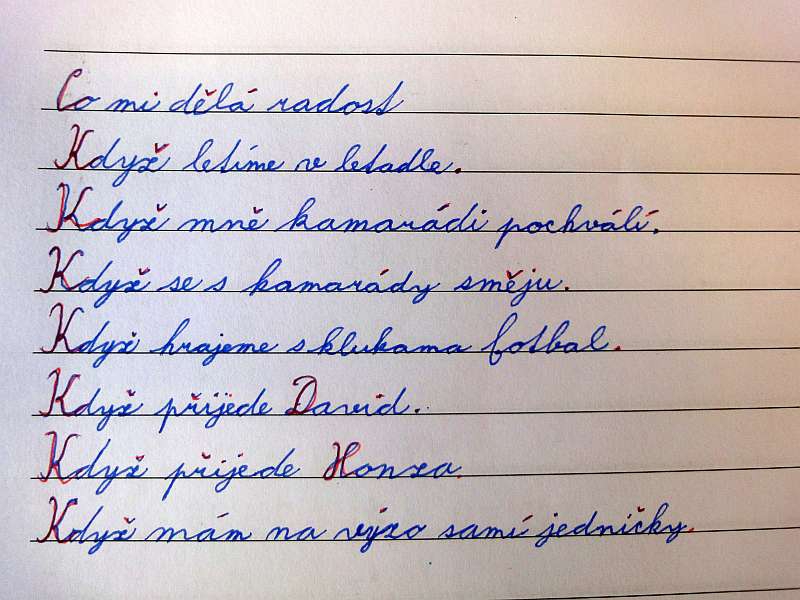 Co mi dělá radost
Když letíme v letadle.
Když mně kamarádi pochválí.
Když se s kamarády směju.
Když hrajeme s klukama fotbal.
Když přijede David.
Když přijede Honza.
Když mám na výzo samí jedničky.